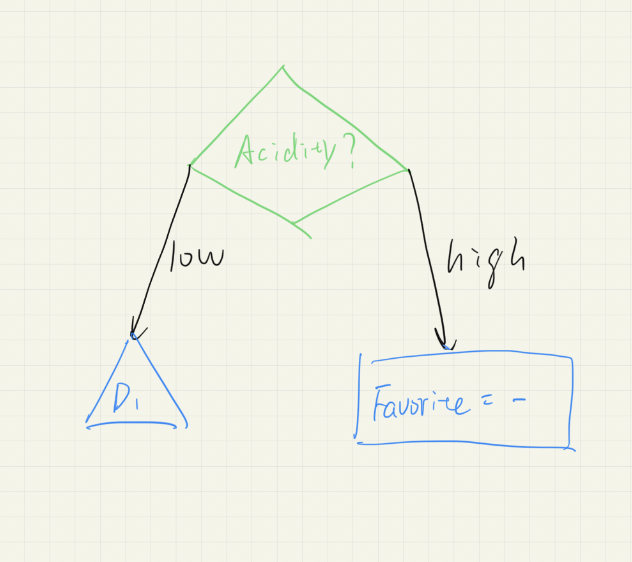 Acidity?
low
high
D1
Favorite = -